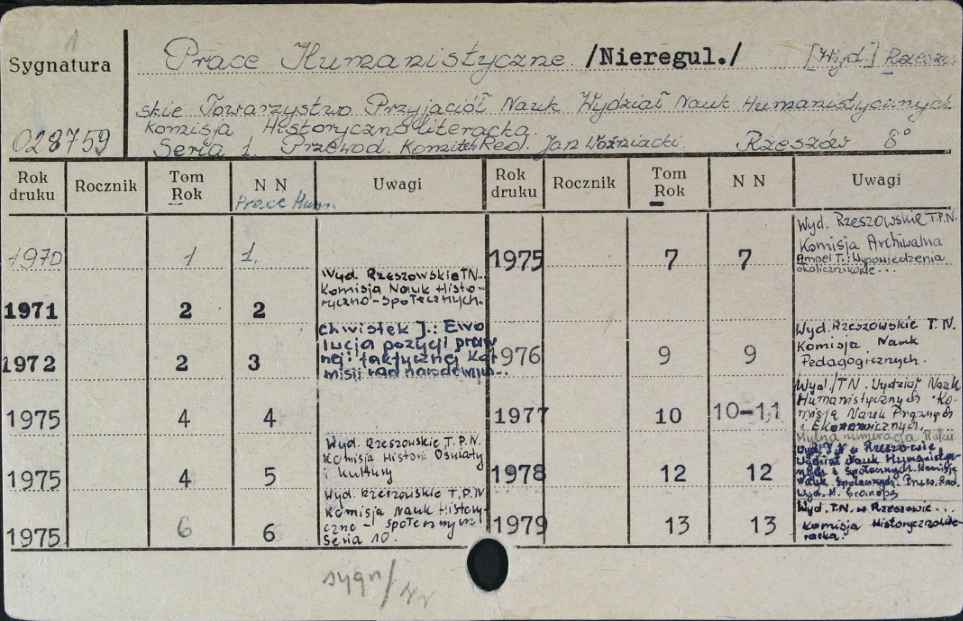 1
Sygnatura
Prace Humanistyczne /Nieregul./ [Wyd.] Rzeszow
skie Towarzystwo Przyjaciół Nauk Wydział Nauk Humanistycznych
Komisja Historycznoliteracka.
028759
Seria 1. Przewod. Komitetu Red. Jan Woźniacki. Rzeszów 8°
Rok druku Rocznik Tom Rok N N Uwagi Rok druku Rocznik Tom Rok N N Uwagi
Prace Hum.
1970 1 1.
1975 7 7 Wyd. Rzeszowskie T.P.N.
Komisja Archiwalna
Ampel T.: Wypowiedzenia
okolicznikowe...
1971 2 2 Wyd. Rzeszowskie TN.
Komisja Nauk Histo-
ryczno-Społecznych.
1972 2 3 Chwistek J.: Ewo
lucja pozycji praw
nej i faktycznej Ko
misji rad narodowych...
1976 9 9 Wyd. Rzeszowskie T.N.
Komisja Nauk
Pedagogicznych.
1975 4 4
1977 10 10-11 Wyd./TN. Wydział Nauk
Humanistycznych Ko-
misja Nauk Prawnych
i Ekonomicznych.
Mylna numeracja
1975 4 5 Wyd. Rzeszowskie T.P.N.
Komisja Historii Oświaty
i Kultury
1978 12 12 Wyd. T.N. w Rzeszowie
Wydział Nauk Humanisty-
cznych i Społecznych. Komisja
Nauk Społecznych. Przew. Red.
Wyd. M.
1975 6 6 Wyd. Rzeszowskie T.P.N
Komisja Nauk History-
czno-Społecznych
Seria 10.
1979 13 13 Wyd. T.N. w Rzeszowie...
Komisja Historycznolite-
racka.
sygn/NN